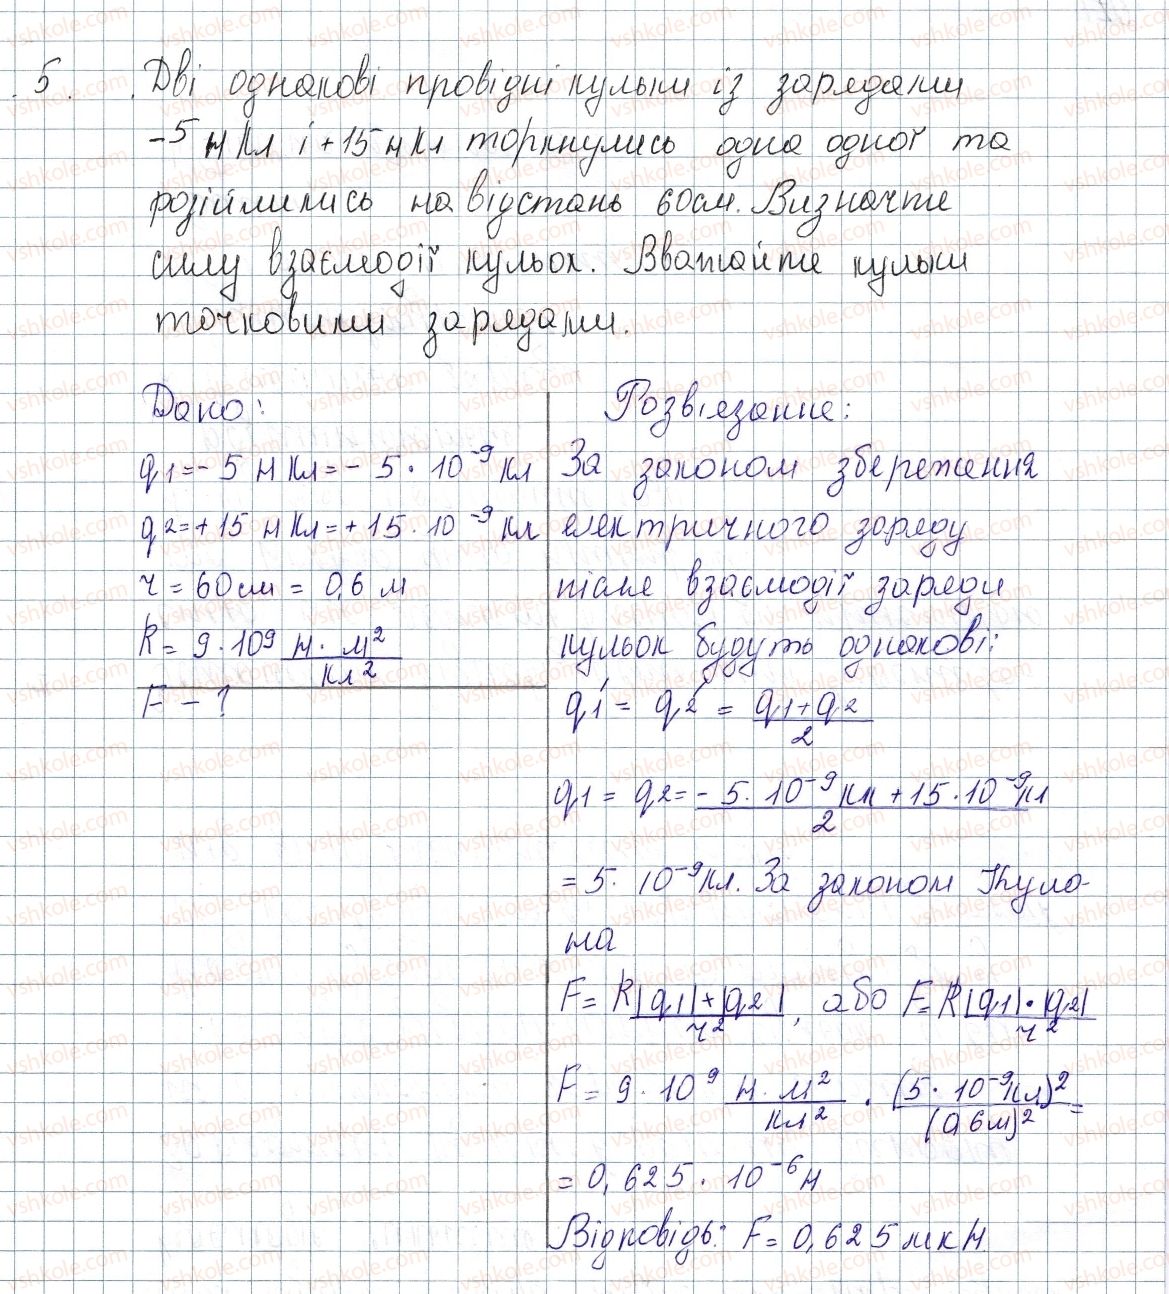 5. Дві однакові провідні кульки із зарядами
-5 нКл і +15 нКл торкнулись одна одної та
розійшлись на відстань 60см. Визначте
силу взаємодії кульок. Вважайте кульки
точковими зарядами.
Дано:
q1 = - 5 нКл = - 5 · 10⁻⁹ Кл
q2 = + 15 нКл = + 15 · 10⁻⁹ Кл
r = 60 см = 0,6 м
k = 9 · 10⁹ Н · м² / Кл²
F - ?
Розв'язання:
За законом збереження
електричного заряду
після взаємодії заряди
кульок будуть однакові:
q1' = q2' = (q1 + q2) / 2
q1 = q2 = (- 5 · 10⁻⁹ Кл + 15 · 10⁻⁹ Кл) / 2
= 5 · 10⁻⁹ Кл. За законом Куло-
на
F = k |q1| + |q2| / r², або F = k |q1| · |q2| / r²
F = 9 · 10⁹ Н · м² / Кл² · (5 · 10⁻⁹ Кл)² / (0,6м)² =
= 0,625 · 10⁻⁶ Н
Відповідь: F = 0,625 мкН
vshkole.com